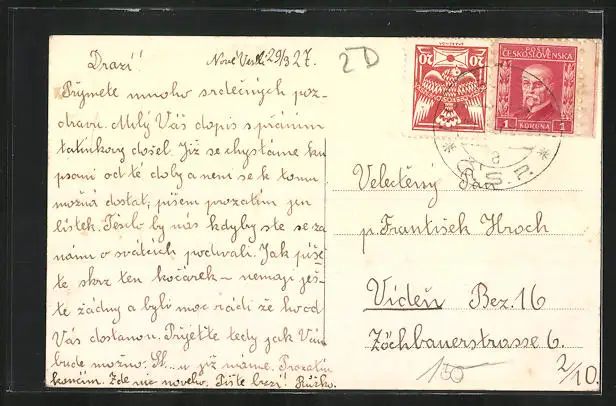 Drazí! Nové Veselí 29/3 27.
2D
Přijmete mnoho srdečných poz-
dravů. Milý Váš dopis s přáním
tatínkovy došel. Již se chystáme ku
psaní od té doby a není se k tomu
možná dostat, píšem prozatím jen
lístek. Těšilo by nás kdyby ste se za
námi o svátcích podívali. Jak píše
te skrz ten kočárek – nemají ješ-
tě žádný a byli moc rádi že ho od
Vás dostanou. Přijeďte tedy jak Vám
bude možno. již máme. Prozatím
končím. Zde nic nového. Pište brzy! Růžka.
20 20
POŠTA
ČESKOSLOVENSKÁ
1 KORUNA 1
* a *
Č.S.R.
Velectěný Pán
p. František Hroch
Vídeň Bez. 16
Zöchbauerstrasse 6.
150
2/10.